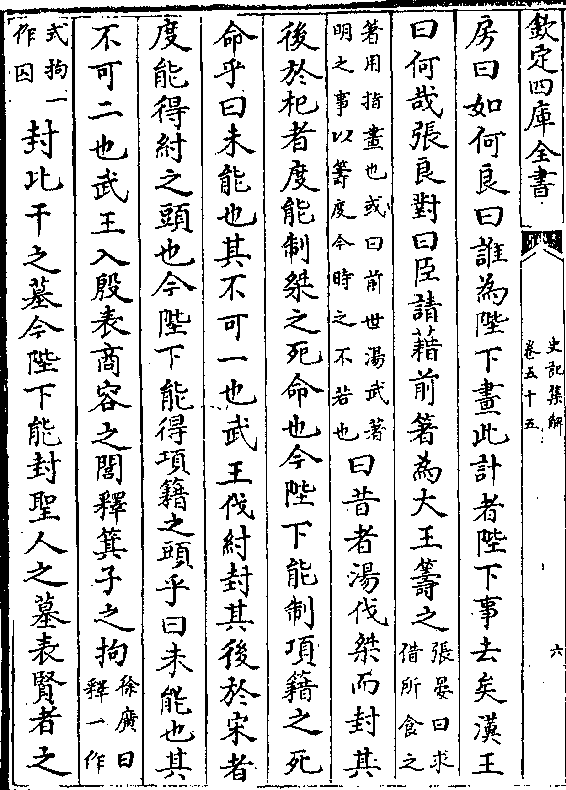 欽定四庫全書
史記集解
卷五十五
六
房曰如何良曰誰為陛下畫此計者陛下事去矣漢王
曰何哉張良對曰臣請藉前箸為大王籌之張晏曰求
借所食之
箸用指畫也或曰前世湯武著
明之事以籌度今時之不若也曰昔者湯伐桀而封其
後於杞者度能制桀之死命也今陛下能制項籍之死
命乎曰未能也其不可一也武王伐紂封其後於宋者
度能得紂之頭也今陛下能得項籍之頭乎曰未能也其
不可二也武王入殷表商容之閭釋箕子之拘徐廣曰
釋一作
式拘一
作囚封比干之墓今陛下能封聖人之墓表賢者之